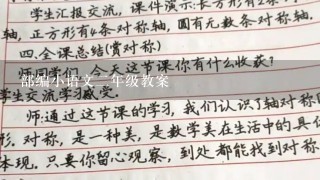 学生汇报交流，课件演示:长方形有2条
轴，正方形有4条对称轴，圆有无数条对称轴.
四.全课总结(赏对称)
今天这节课你有什么收获?
部编小语文一年级教案
学生交流学习感受.
师:通过这节课的学习，我们认识了轴对称
形.对称，是一种美，是数学美在生活中的具
体现.只要你留心观察，到处都能找到对称